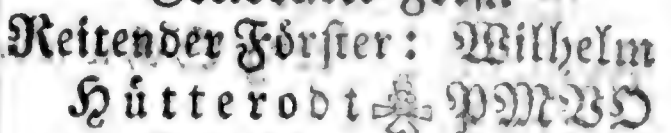 Reitender Förster: Wilhelm
Hütterodt PMVO